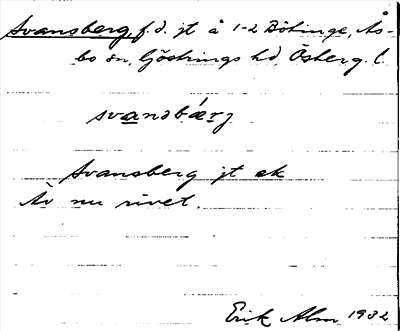 Svansberg, f.d. jt å 1-2 Bötinge, Ås-
bo sn, Göstrings hd, Österg. l.
svansbærj
Svansberg jt ek
Är nu rivet.
Erik Alm 1932